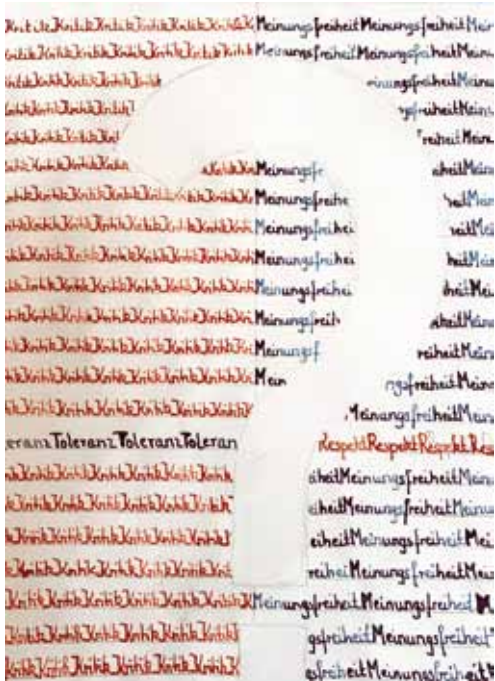 KritikKritikKritikKritikKritikKMeinungsfreiheitMeinungsfreiheitMein
KritikKritikKritikKritikKritikKMeinungsfreiheitMeinungsfreiheitMeinu
KritikKritikKritikKritik inungsfreiheitMeinu
KritikKritikKritik gsfreiheitMeinu
KritikKritikKritik freiheitMeinu
KritikKritikKritik KritikKriMeinungsfr eiheitMeinu
KritikKritikKritikKritikKritikKriMeinungsfreihe heitMein
KritikKritikKritikKritikKritikKriMeinungsfreihei heitMein
KritikKritikKritikKritikKritikKriMeinungsfreihei heitMein
KritikKritikKritikKritikKritikKriMeinungsfreihei iheitMei
KritikKritikKritikKritikKritikKriMeinungsfreih eiheitMein
KritikKritikKritikKritikKritikKriMeinungsf reiheitMein
KritikKritikKritikKritikKritikKriMein ngsfreiheitMein
KritikKritikKritikKritikKritik MeinungsfreiheitMein
eranzToleranzToleranzToleran RespektRespektRespektRes
KritikKritikKritikKritikKritik eiheitMeinungsfreiheitMein
KritikKritikKritikKritikKritik eiheitMeinungsfreiheitMein
KritikKritikKritikKritikKritik eiheitMeinungsfreiheitMei
KritikKritikKritikKritikKrit reiheiMeinungsfreiheitMein
KritikKritikKritikKritikKritikKMeinungsfreiheitMeinungsfreiheitM
KritikKritikKritikKritikKritik gsfreiheitMeinungsfreiheit
KritikKritikKritikKritikKritikK gsfreiheitMeinungsfreiheitM